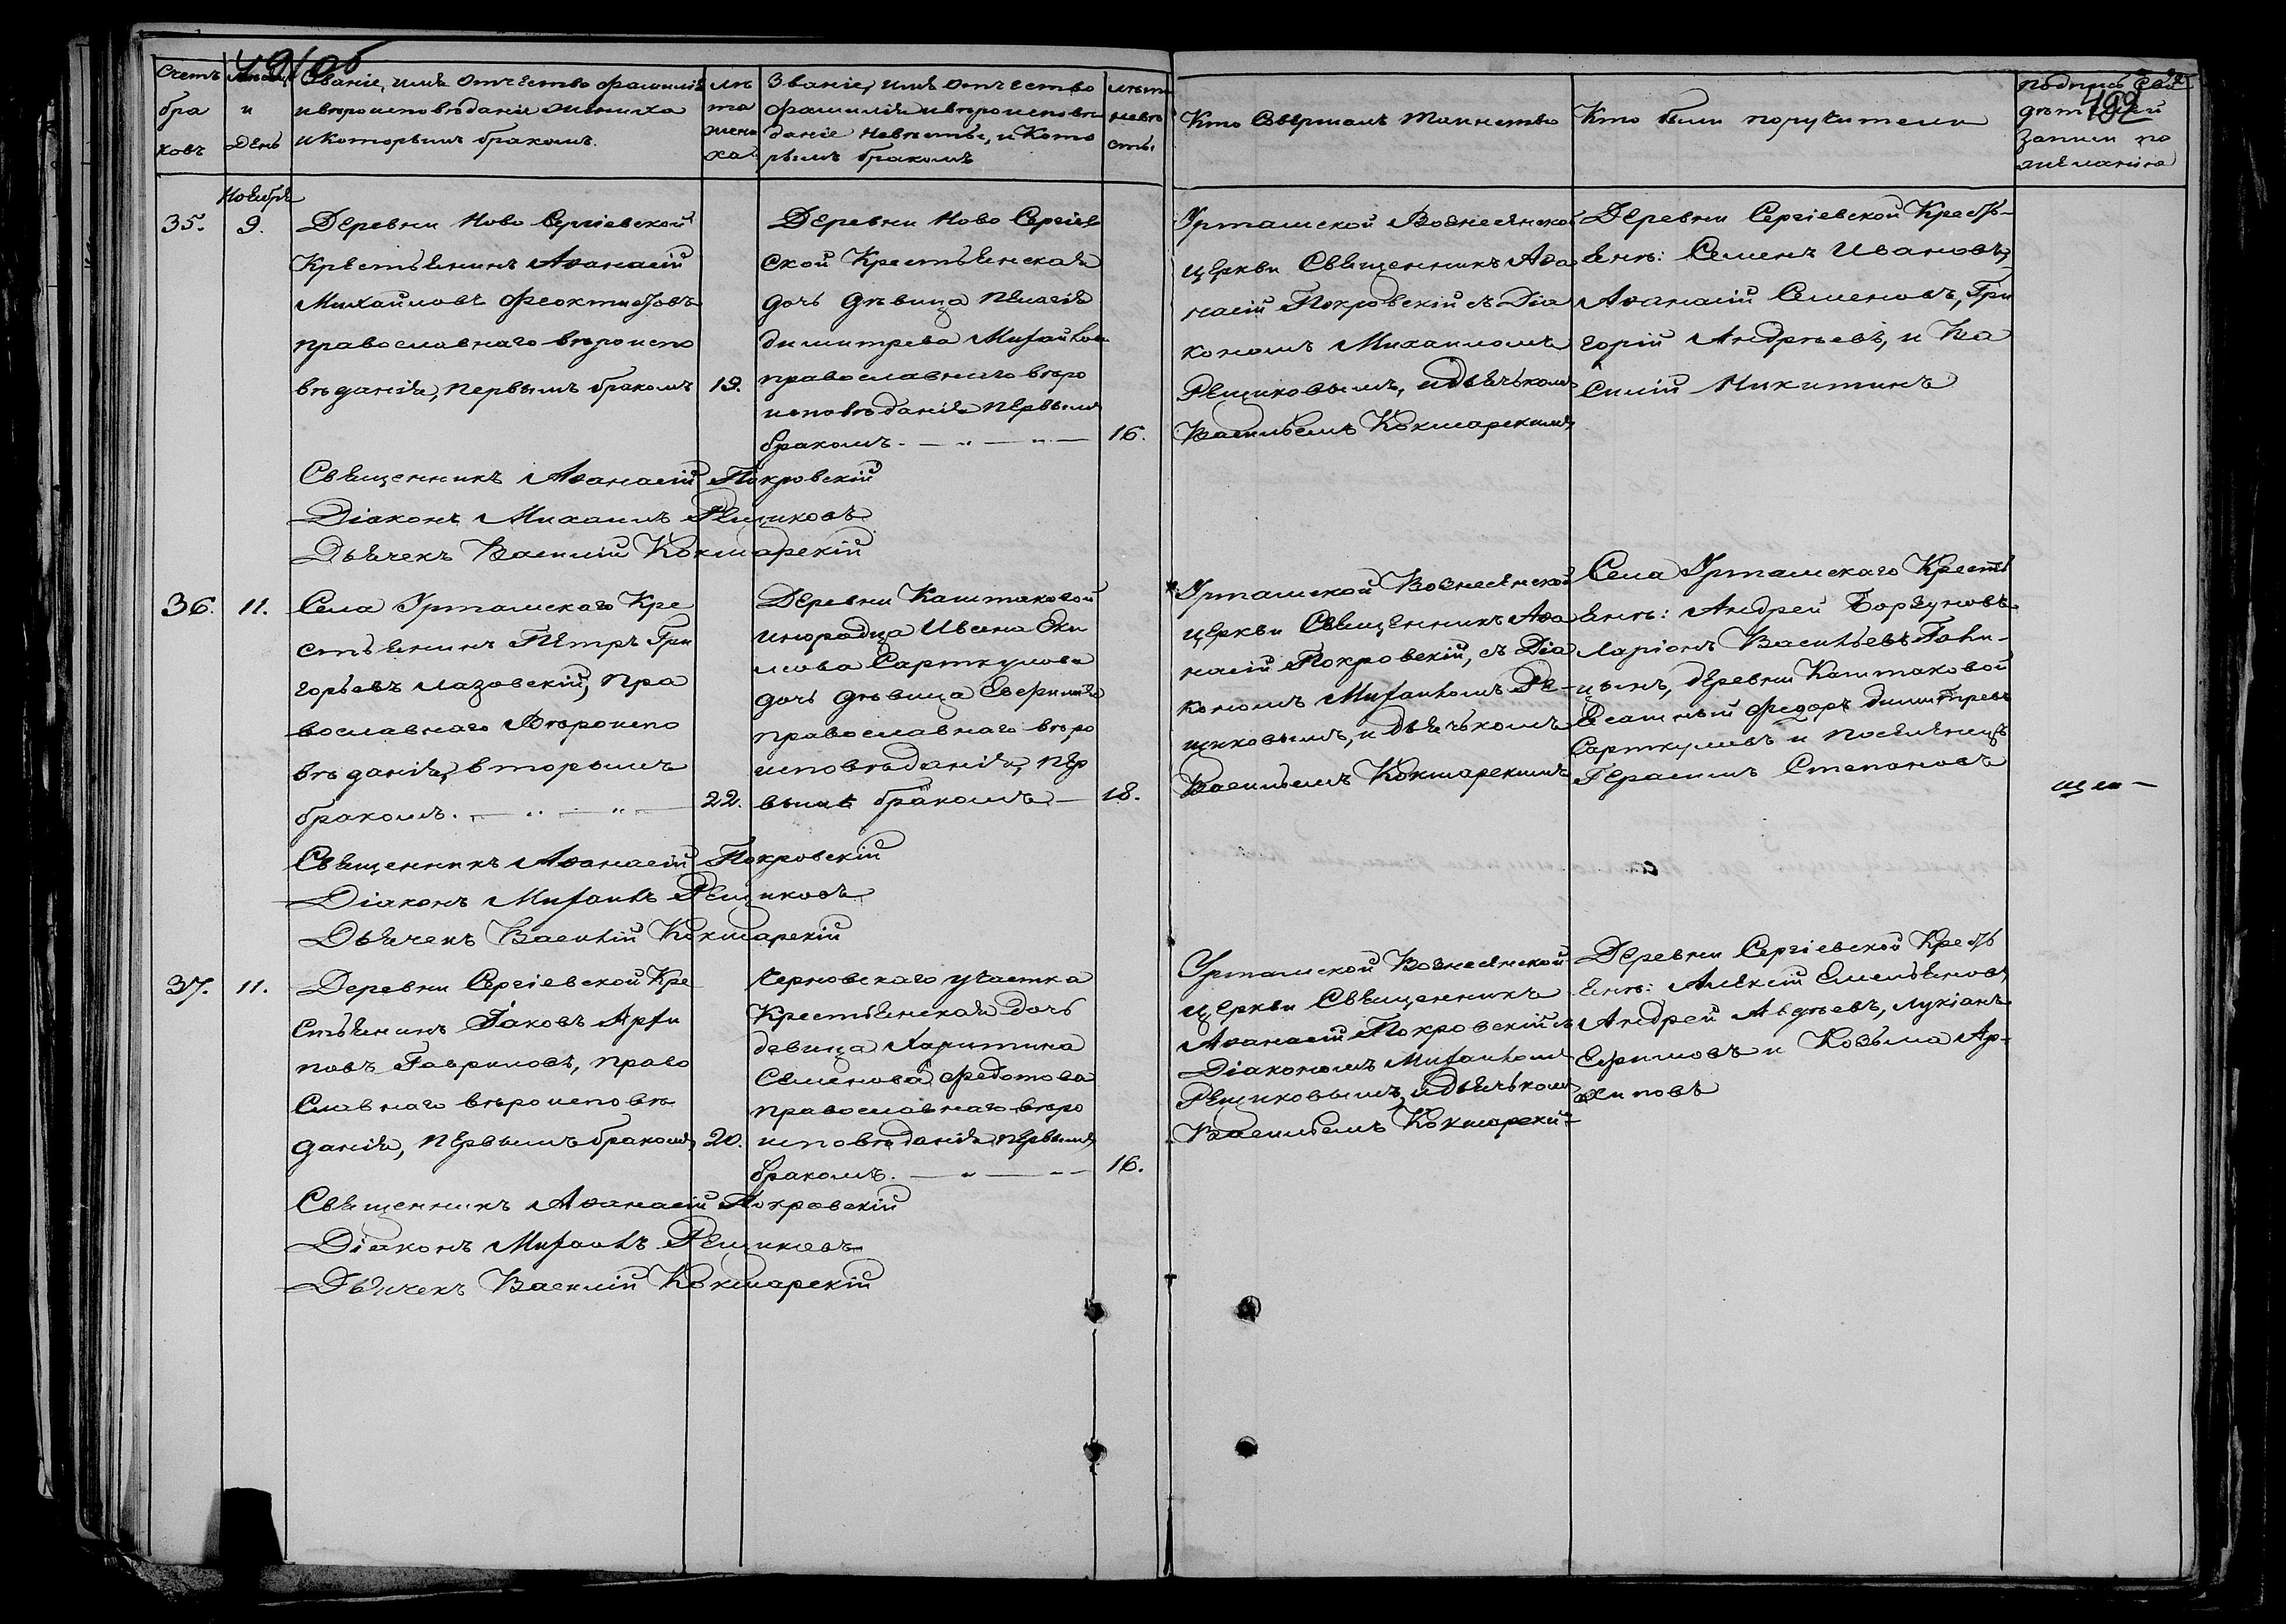 Счетъ
бра
ковъ
и
День
Званіе, имя отчество фамилія
и вѣроисповѣданіе жениха
и которымъ бракомъ.
лѣ
та
жени
ха
Званіе, имя отчество
фамилія и вѣроисповѣ
даніе невѣсты, и кото
рымъ бракомъ
лѣта
невѣ
сты
Кто Совершалъ Таинство
Кто были поручители
подпись сви
дѣтелей
записи по
желанію
499
Ноября
35.
9.
Деревни Ново Сергіевской
Крестьянинъ Аѳанасій
Михайловъ Феоктистовъ
православнаго вѣроиспо
вѣданія, первымъ бракомъ
19.
Деревни Ново Сергіев
ской Крестьянская
дочь дѣвица Пелагія
Димитрева
православнаго вѣро
исповѣданія первымъ
бракомъ.
16.
Урташской Вознесенской
церкви Священникъ Аѳа
насій Покровскій съ Діа
кономъ Михаиломъ
Рещиковымъ, и дьячькомъ
Васильемъ Кокшарскимъ
Деревни Сергіевской Кресть-
яне: Семенъ Ивановъ,
Аѳанасій Семеновъ, Гри
горій Андрѣевъ, и Ва
силій Никитинъ
Священникъ Аѳанасій Покровскій
Діаконъ Михаилъ Рещиковъ
Дьячекъ Василій Кокшарскій
36.
11.
Села Урташскаго Кре
стьянинъ Петръ Гри
горьевъ Лазовскій, Пра
вославнаго Вѣроиспо
вѣданія, вторымъ
бракомъ.
22.
Деревни Каштаковой
инородца Ивана Яки
мова Сарткулова
дочь дѣвица Евфимія
православнаго вѣро
исповѣданія, пер
вымъ бракомъ
18.
Урташской Вознесенской
церкви Священникъ Аѳа
насій Покровскій, съ Діа
кономъ Михаиломъ Ре-
щиковымъ, и дьячькомъ
Васильемъ Кокшарскимъ
Села Урташскаго Кресть
яне: Андрей Борзуновъ
Ларіонъ Васильевъ
деревни Каштаковой
Ясашный Федоръ Димитревъ
Сарткуловъ и поселенецъ
Герасимъ Степановъ
Священникъ Аѳанасій Покровскій
Діаконъ Михаилъ Рещиковъ
Дьячекъ Василій Кокшарскій
37.
11.
Деревни Сергіевской Кре
стьянинъ Іаковъ Архи
повъ Гавриловъ, право
славнаго вѣроисповѣ
данія, первымъ бракомъ
20.
Черновскаго участка
Крестьянская дочь
девица Харитина
Семенова Федотова
православнаго вѣро
исповѣданія, первымъ
бракомъ.
16.
Урташской Вознесенской
церкви Священникъ
Аѳанасій Покровскій съ
Діакономъ Михаиломъ
Рещиковымъ, и дьячькомъ
Васильемъ Кокшарски-
Деревни Сергіевской Кресть
яне: Алексій Емельяновъ,
Андрей Авдѣевъ, Лукіанъ
Ефимовъ и Козьма Ар-
хиповъ
Священникъ Аѳанасій Покровскій
Діаконъ Михаилъ Рещиковъ
Дьячекъ Василій Кокшарскій